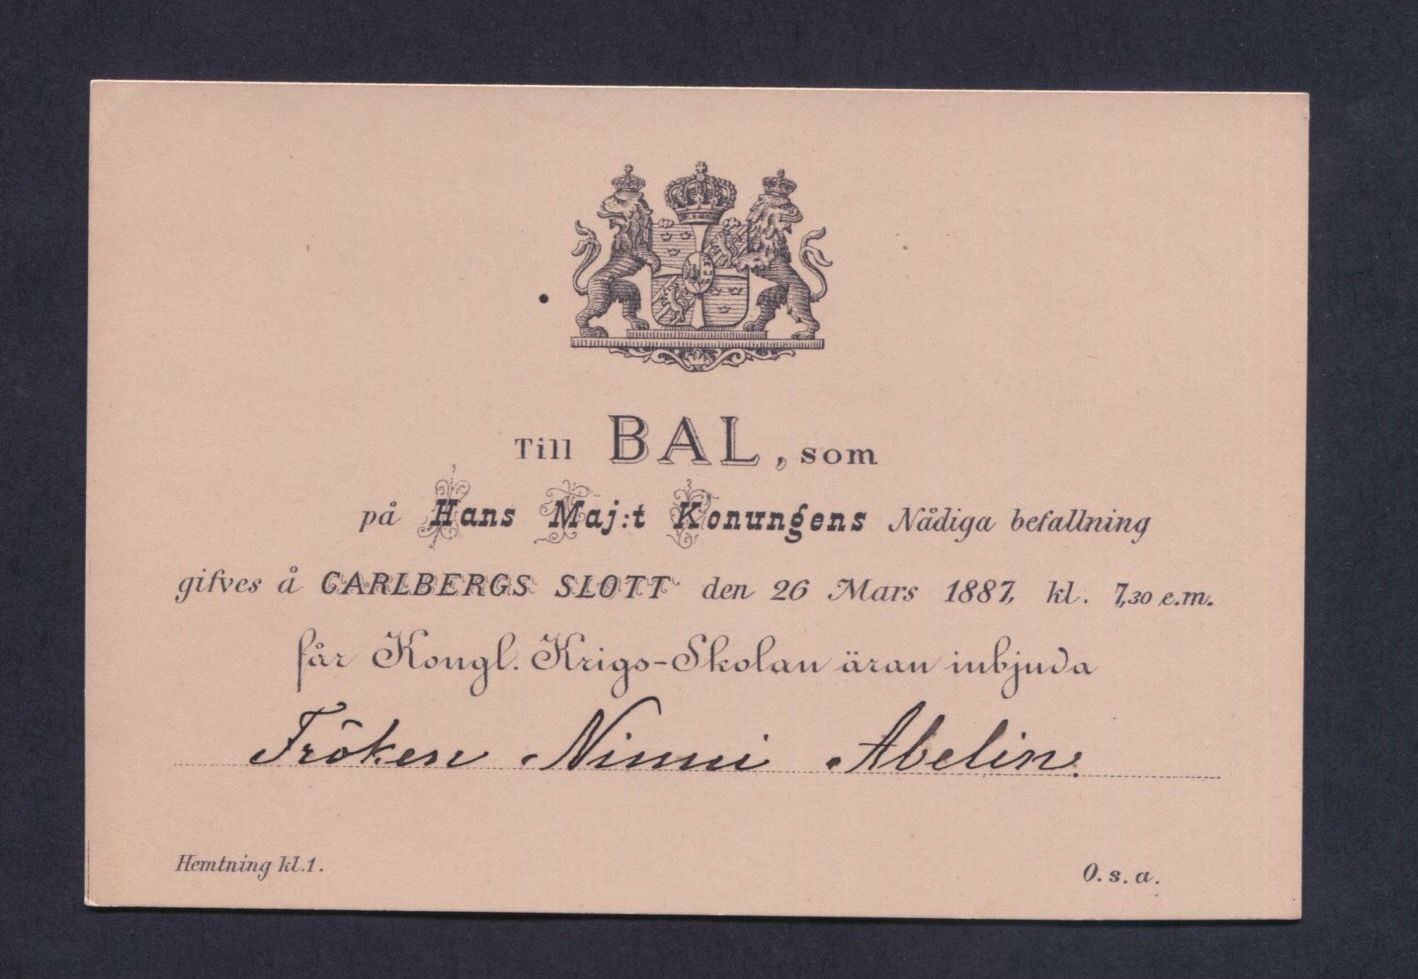 Till BAL, som
på Hans Maj:t Konungens Nådiga befallning
gifves å CARLBERGS SLOTT den 26 Mars 1887, kl. 7,30 e.m.
får Kongl. Krigs-Skolan äran inbjuda
Fröken Ninni Abelin.
Hemtning kl.1.
O.s.a.